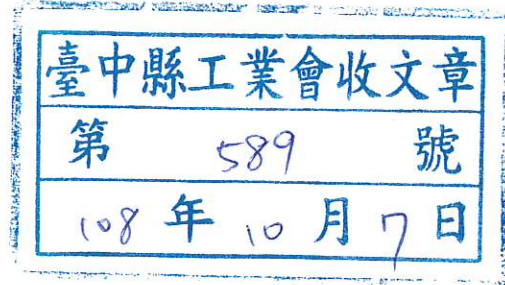 臺中縣工業會收文章
第 589 號
108 年 10 月 7 日